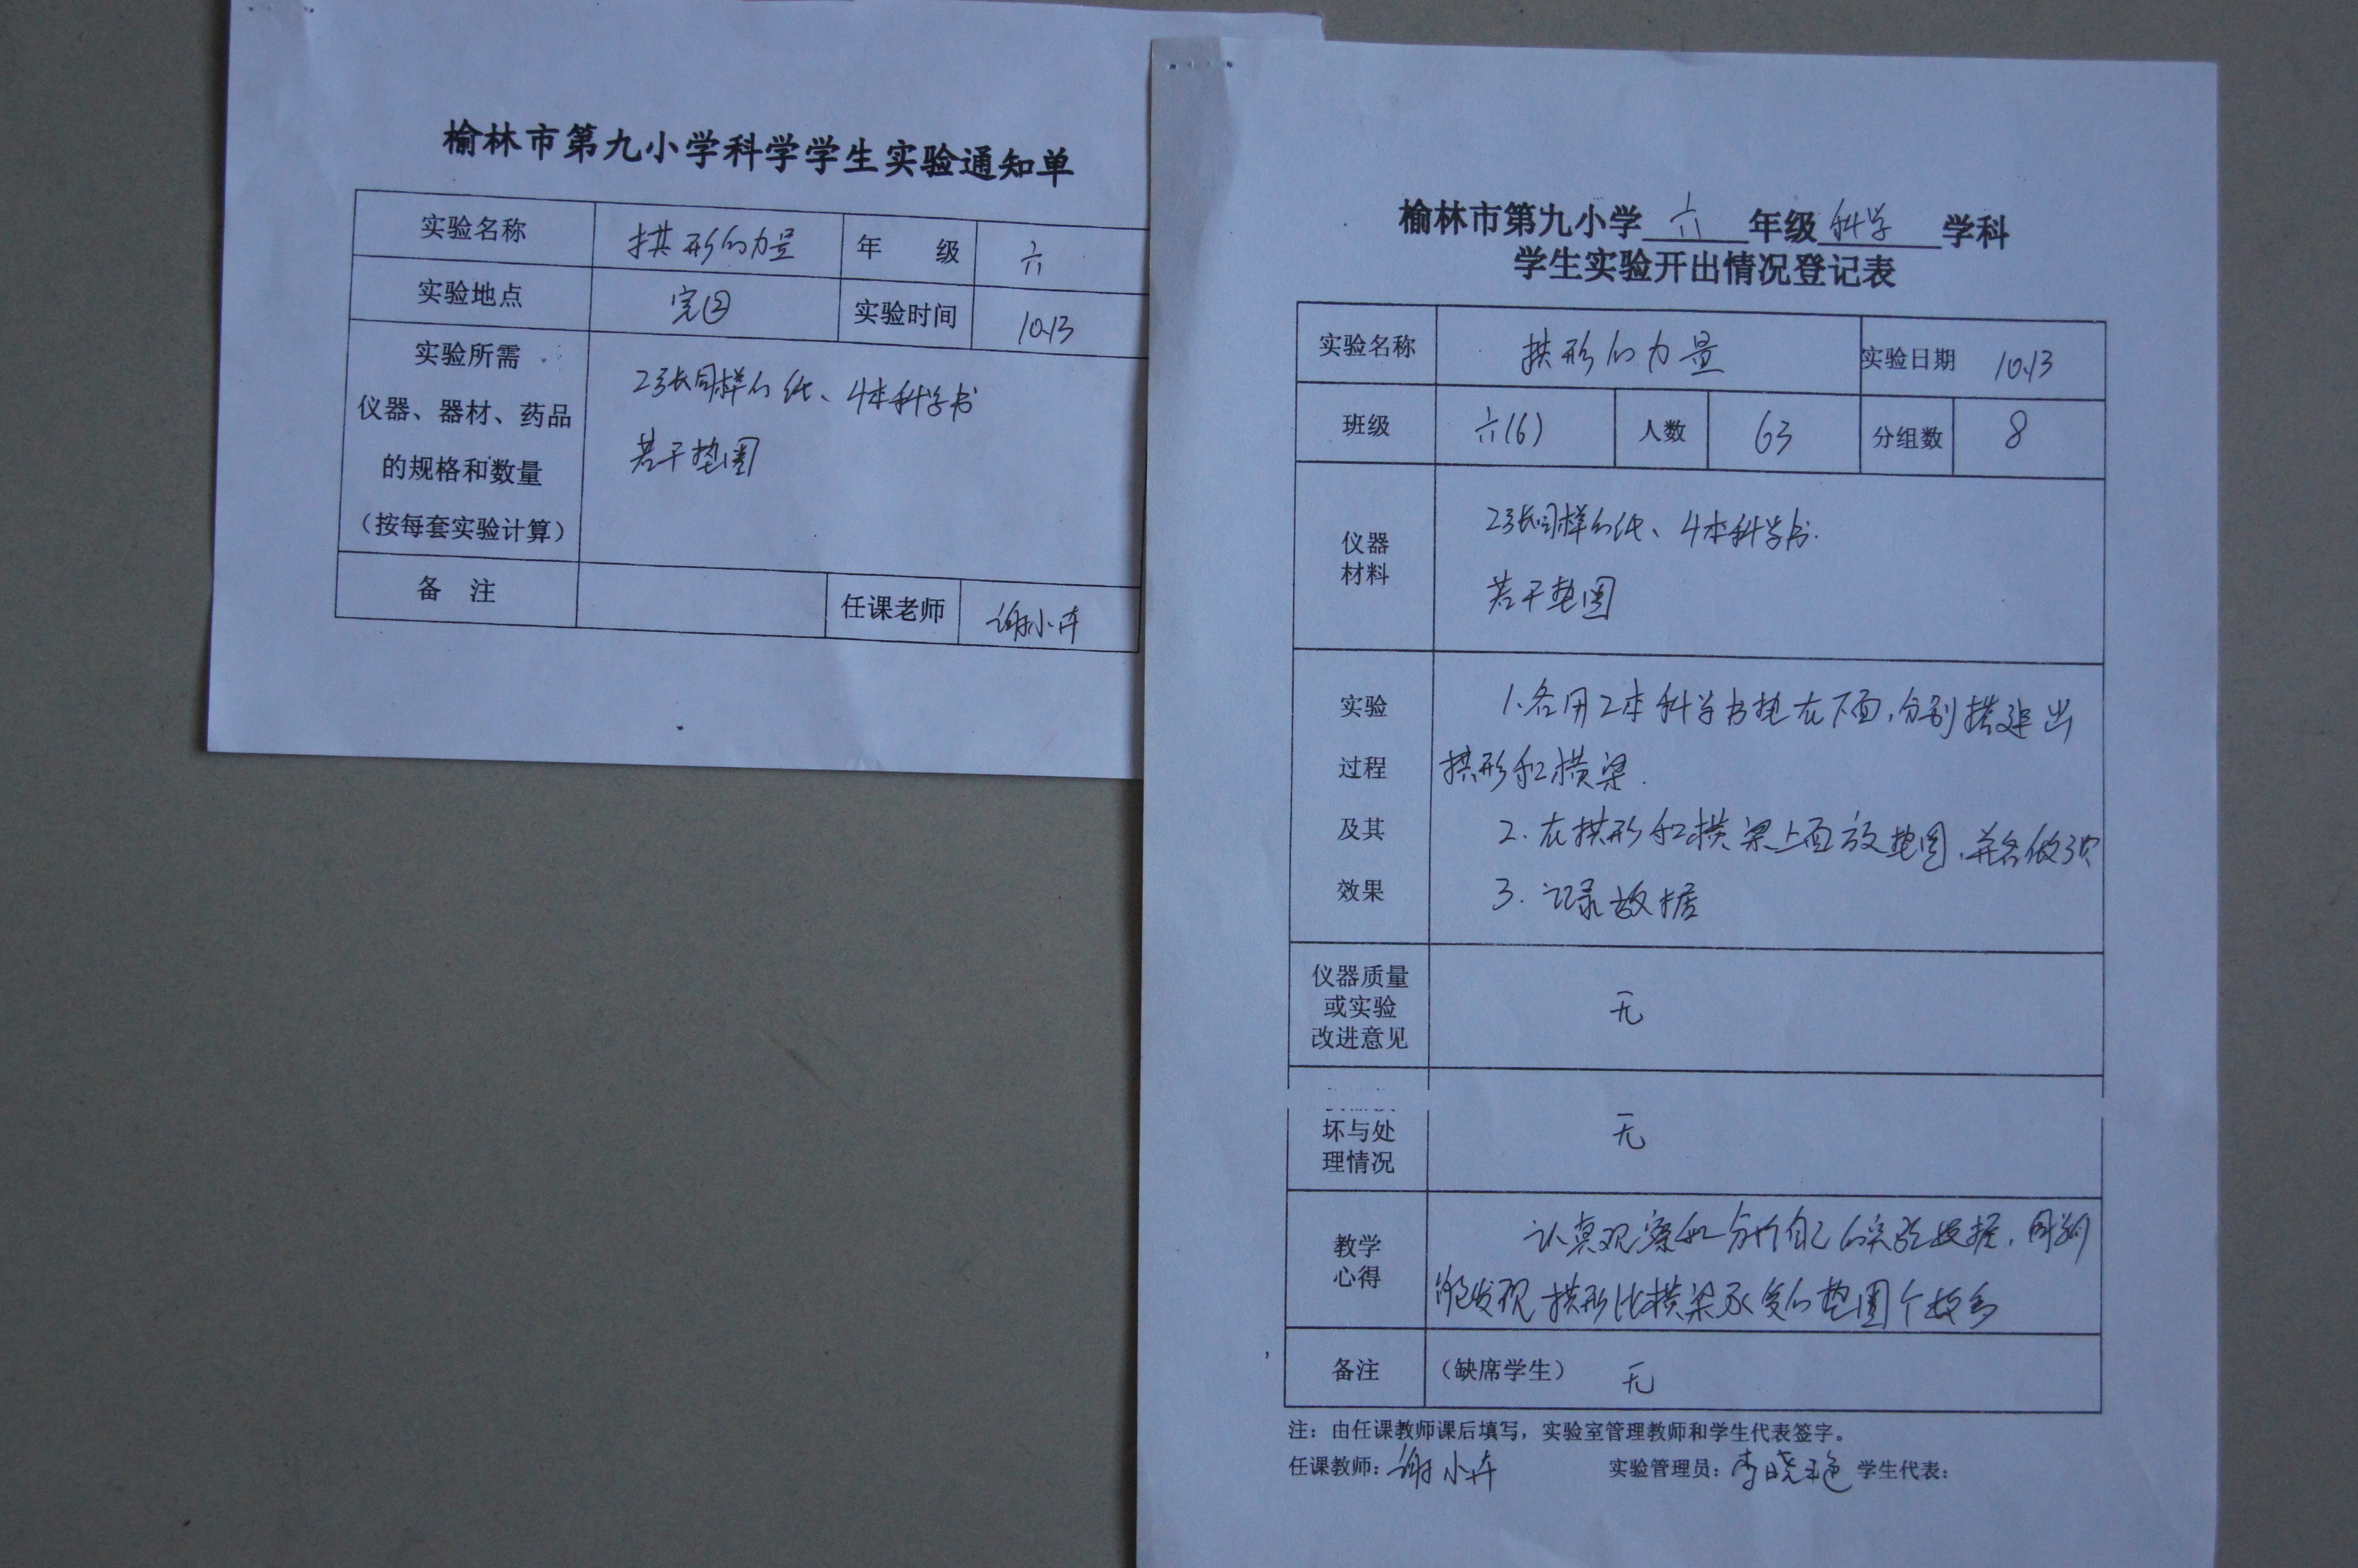 榆林市第九小学科学学生实验通知单
实验名称 拱形的力量 年 级 六
实验地点 实② 实验时间 10.13
实验所需
仪器、器材、药品
的规格和数量
(按每套实验计算)
2张同样的纸、4本科学书
若干垫圈
备 注 任课老师 谢小卉
榆林市第九小学 六 年级 科学 学科
学生实验开出情况登记表
实验名称 拱形的力量 实验日期 10.13
班级 六(6) 人数 63 分组数 8
仪器
材料
2张同样的纸、4本科学书.
若干垫圈
实验
过程
及其
效果
1.各用2本科学书垫在下面,分别搭建出
拱形和横梁.
2.在拱形和横梁上面放垫圈,并各做3次
3.记录数据
仪器质量
或实验
改进意见
无
坏与处
理情况
无
教学
心得
认真观察和分析自己的实验数据,
能发现拱形比横梁承受的垫圈个数多
备注 (缺席学生) 无
注:由任课教师课后填写,实验室管理教师和学生代表签字。
任课教师:谢小卉 实验管理员:李晓艳 学生代表: